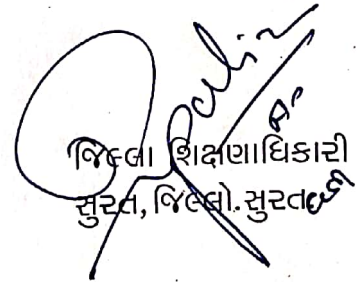 જિલ્લા શિક્ષણાધિકારી
સુરત, જિલ્લો.સુરત